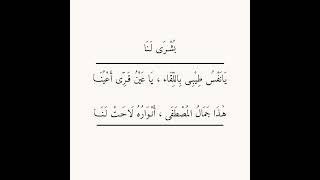 بُشْرَى لَنَا
يَانَفْسُ طِيْبِى بِاللِّقَاء ، يَا عَيْنُ قَرِّى أَعْيُنَا
هٰذَا جَمَالُ المُصْطَفَى ، أَنْوَارُهُ لَاحَتْ لَنَا